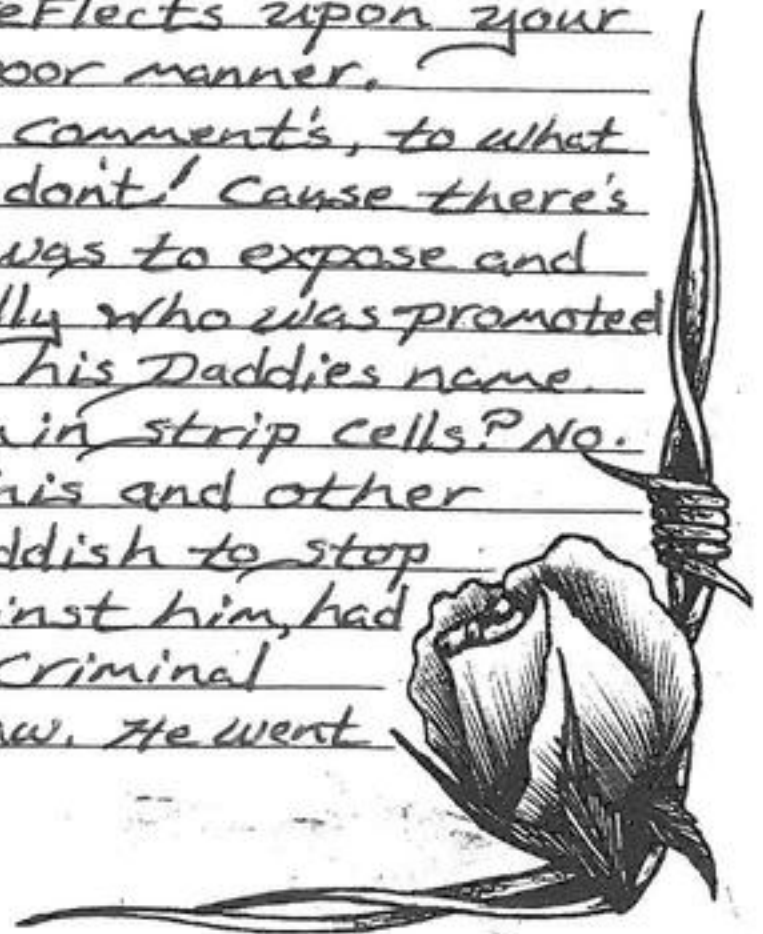 eflects upon your
oor manner.
comment's, to what
don't! Cause there's
was to expose and
lly who was promoted
his Daddies name.
in strip cells? No.
his and other
ddish to stop
inst him, had
Criminal
aw. He went